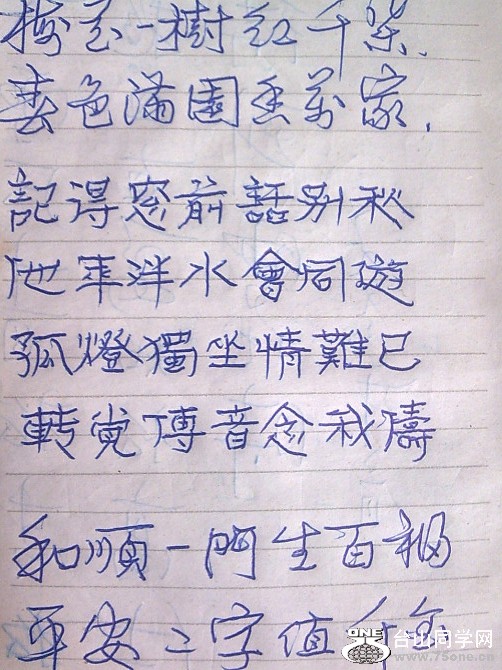 梅花一樹紅千朵.
春色滿園香萬家.
記得窓前話别秋
他年泮水會同遊
孤燈獨坐情難已
轉覚傳音念我儔
和順一門生百福
平安二字值千金
ONE
台山同学网
www.75one.com